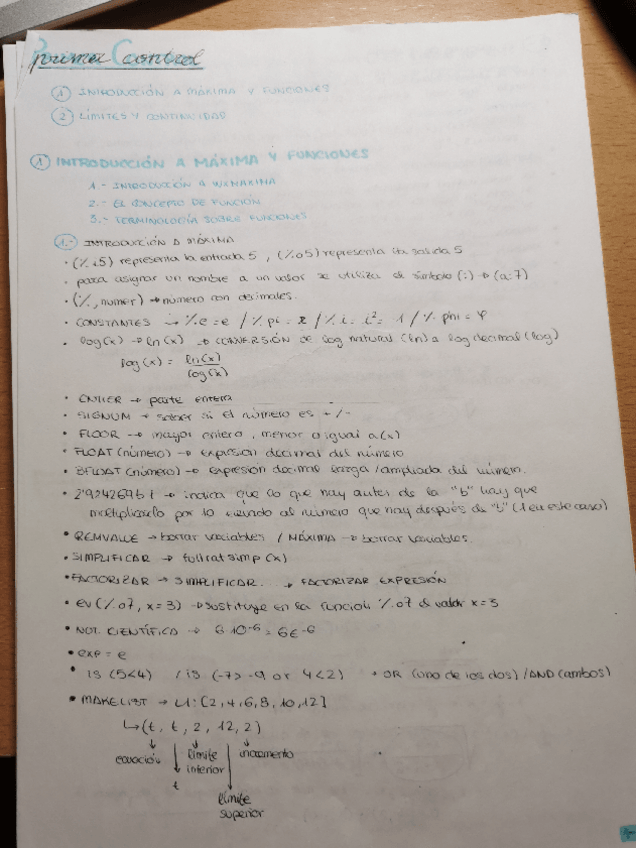 Primer Control
1 INTRODUCCIÓN A MÁXIMA Y FUNCIONES
2 LÍMITES Y CONTINUIDAD
1 INTRODUCCIÓN A MÁXIMA Y FUNCIONES
1.- INTRODUCCIÓN A WXMAXIMA
2.- EL CONCEPTO DE FUNCIÓN
3.- TERMINOLOGÍA SOBRE FUNCIONES
1.- INTRODUCCIÓN A MÁXIMA
• (%i5) representa la entrada 5, (%o5) representa la salida 5
• para asignar un nombre a un valor se utiliza el símbolo (:) → (a:7)
• (%, numer) → número con decimales.
• CONSTANTES → %e = e / %pi = / %i = i² = 1 / %phi = φ
• log(x) → ln(x) → CONVERSIÓN de log natural (ln) a log decimal (log)
log(x) = ln(x)
log(x)
• ENTIER → parte entera
• SIGNUM → saber si el número es +/-
• FLOOR → mayor entero, menor o igual a (x)
• FLOAT (número) → expresión decimal del número
• BFLOAT (número) → expresión decimal larga/ampliada del número.
• indica que lo que hay antes de la "b" hay que
multiplicarlo por lo elevado al número que hay después de "b" (1 en este caso)
• REMVALUE → borrar variables / MÁXIMA → borrar variables.
• SIMPLIFICAR → fullratsimp (x)
• FACTORIZAR → SIMPLIFICAR. → FACTORIZAR EXPRESIÓN
• ev (%o7, x=3) → sustituye en la función %o7 el valor x=3
• NOT. CIENTÍFICA → 6·10⁻⁶ = 6E⁻⁶
• exp = e
• is (5<4) / is (-7>-9 or 4<2) • OR (uno de los dos) / AND (ambos)
• MAKELIST → L1: [2, 4, 6, 8, 10, 12]
↳ (t, t, 2, 12, 2)
ecuación límite incremento
inferior
t
límite
superior